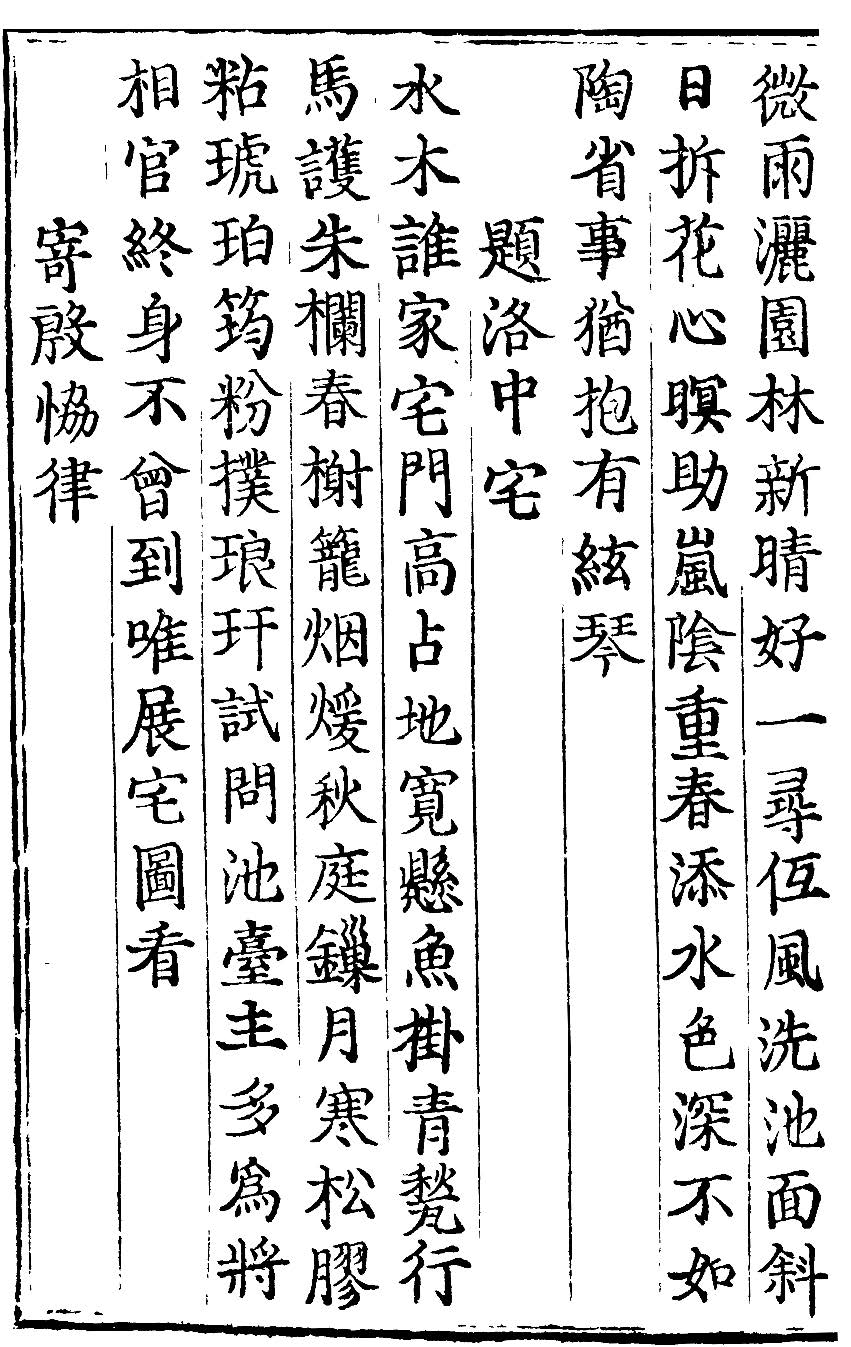 微雨灑園林新晴好一尋低風洗池面斜
日拆花心暝助嵐陰重春添水色深不如
陶省事猶抱有絃琴
題洛中宅
水木誰家宅門高占地寬懸魚掛青甃行
馬護朱欄春榭籠烟煖秋庭鏁月寒松膠
粘琥珀筠粉撲琅玕試問池臺主多爲將
相官終身不曾到唯展宅圖看
寄殷恊律